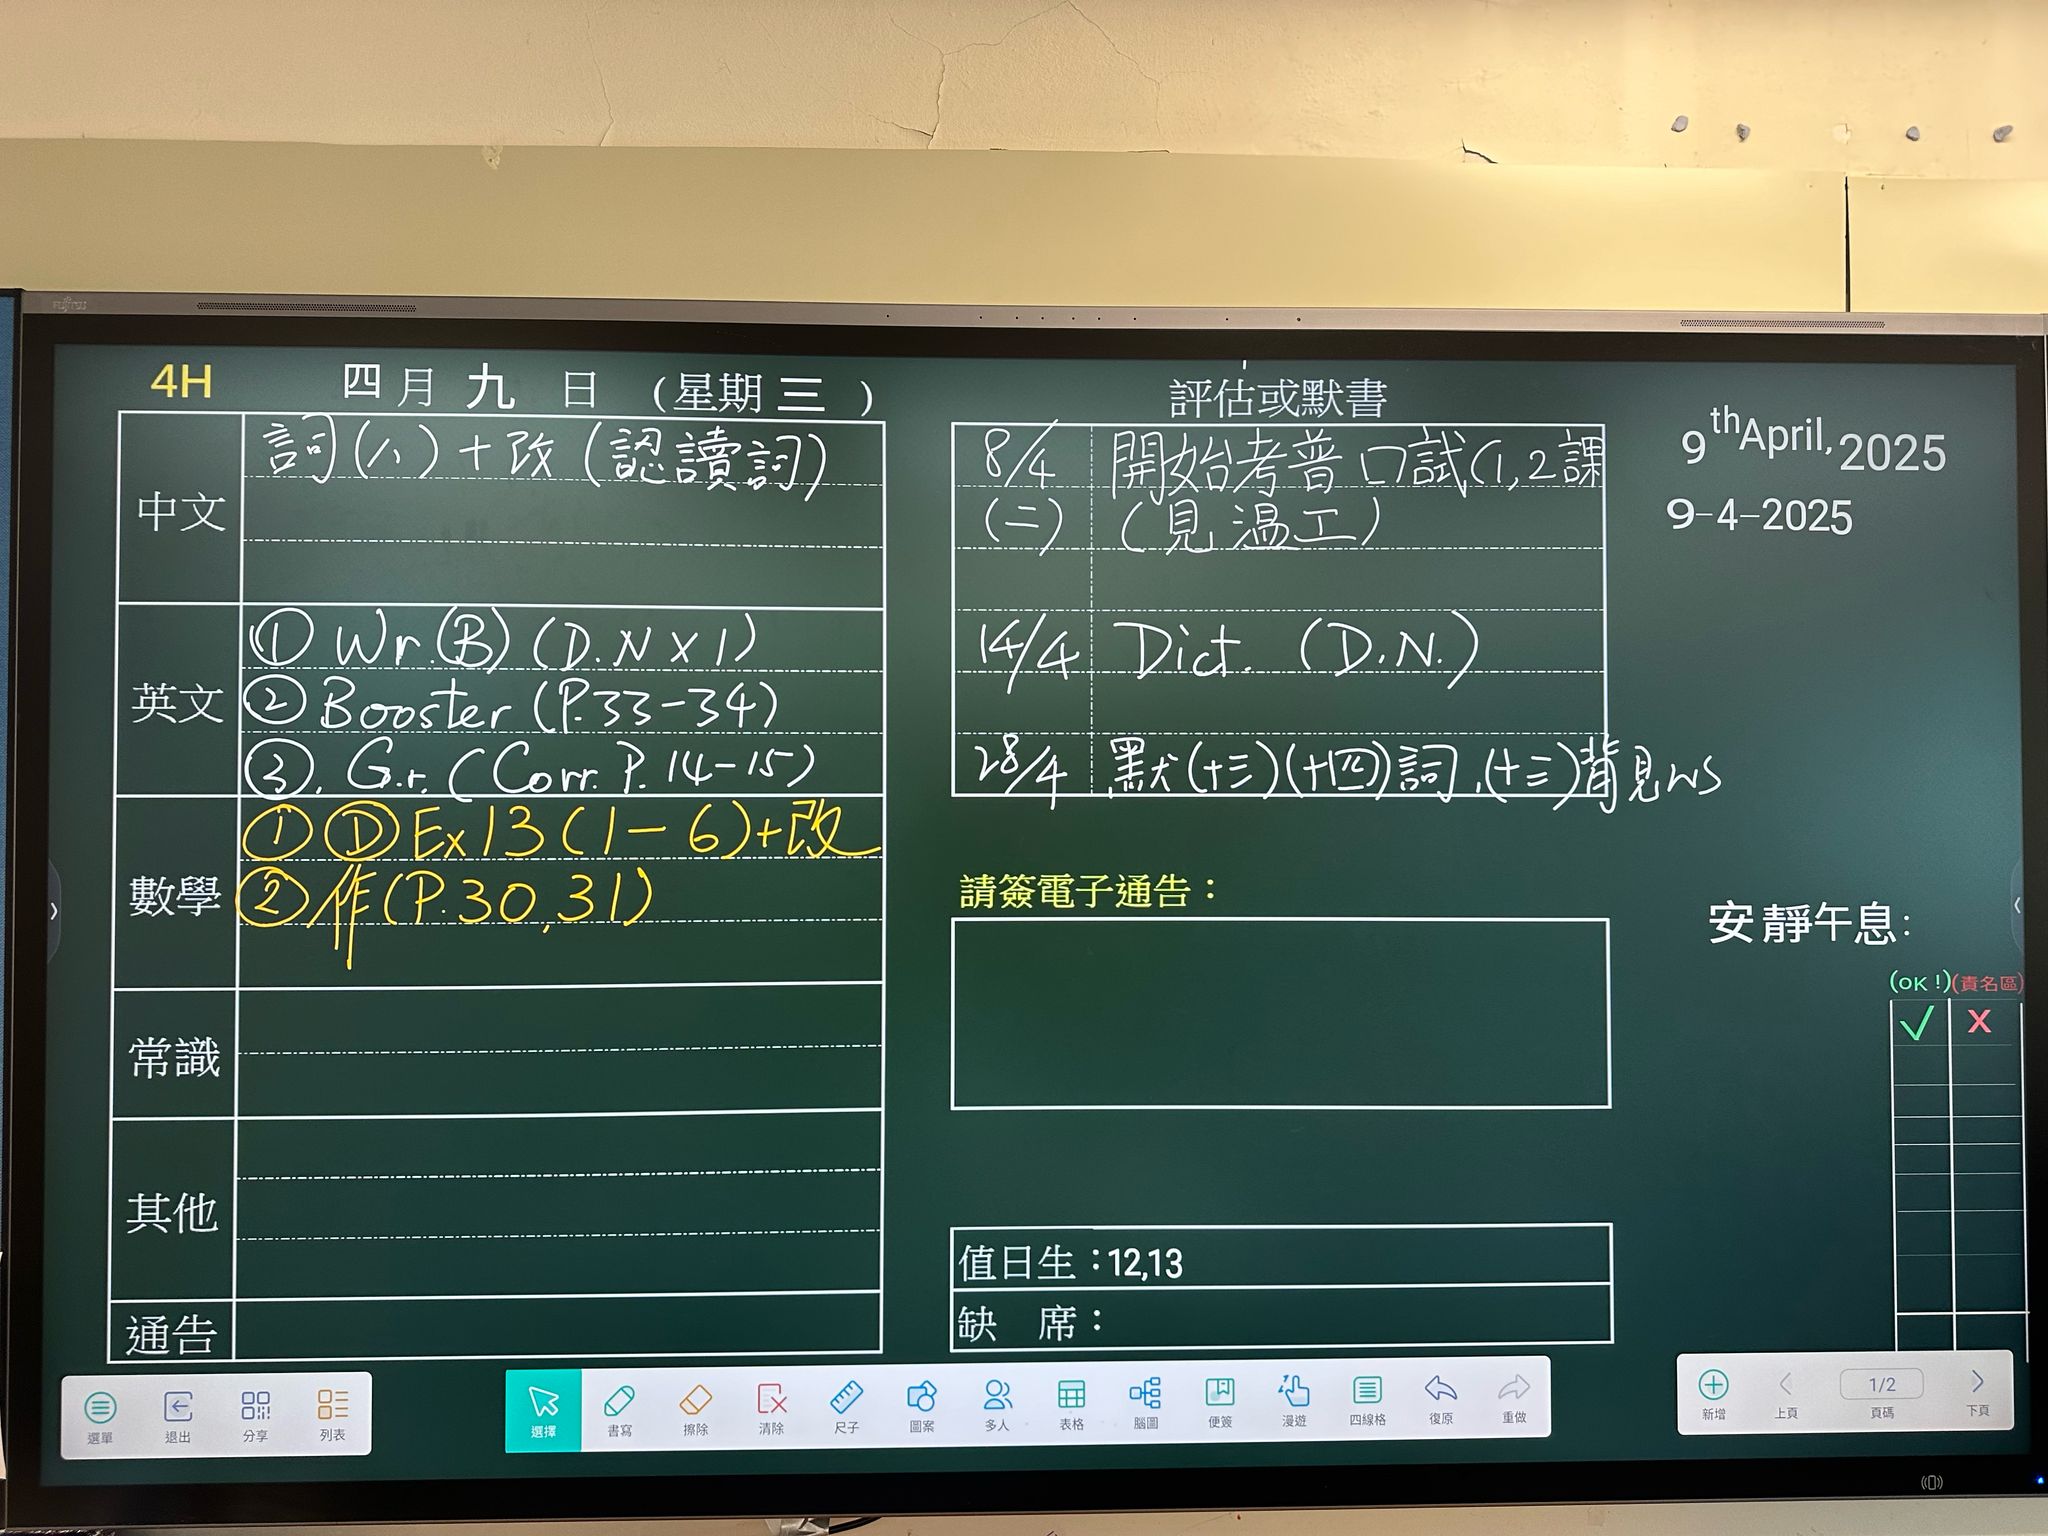 FUJITSU
4H 四月九日（星期三）
中文
詞(八)+改(認讀詞)
英文
① Wr.(B) (D.N x 1)
② Booster (P.33-34)
③. Gr. (Corr. P.14-15)
數學
① Ⓓ Ex13(1-6)+改
② 作(P.30,31)
常識
其他
通告
評估或默書
8/4 開始考普口試(1,2課
(二) (見溫工)
14/4 Dict. (D.N.)
28/4 默(十三)(十四)詞,(十三)背見WS
請簽電子通告：
值日生：12,13
缺 席：
9th April, 2025
9-4-2025
安靜午息：
(OK！)(責名區)
✓ X
選單 退出 分享 列表
選擇 書寫 擦除 清除 尺子 圖案 多人 表格 腦圖 便簽 漫遊 四線格 復原 重做
新增 上頁 1/2 頁碼 下頁